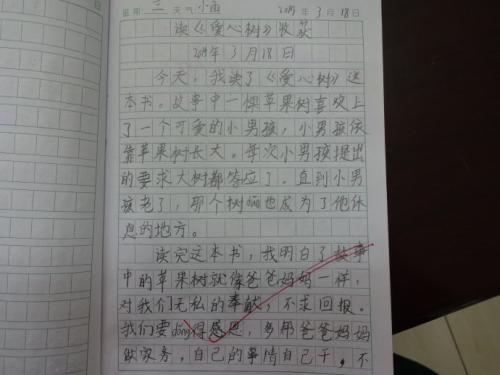 星期 三 天气 小雨 2015年 3月 18日
读《爱心树》收获
2015年3月18日
今天，我读了《爱心树》这
本书。故事中一棵苹果树喜欢上
了一个可爱的小男孩，小男孩依
靠苹果树长大。每次小男孩提出
的要求大树都答应了。直到小男
孩老了，那个树dūn也成为了他休
息的地方。
读完这本书，我明白了故事
中的苹果树就像爸爸妈妈一样，
对我们无私的奉献，不求回报。
我们要dǒng得感恩，多帮爸爸妈妈
做家务，自己的事情自己干，不